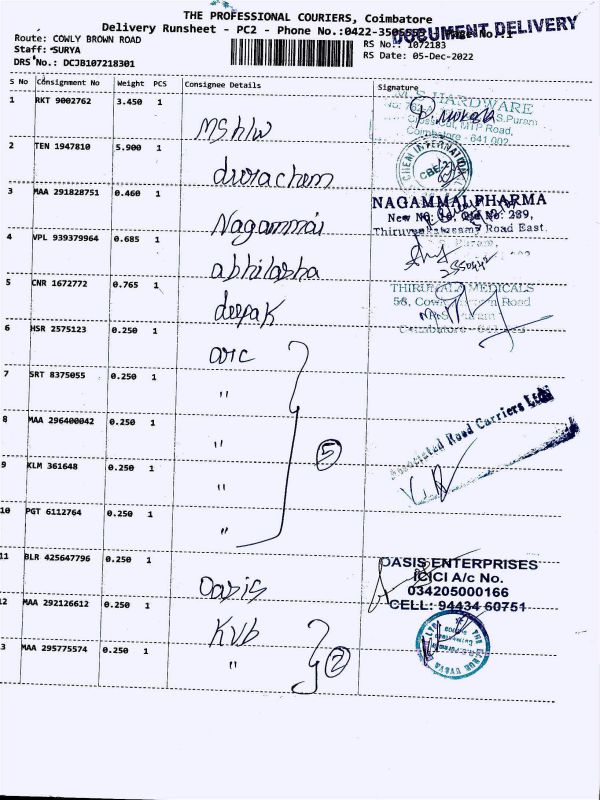 THE PROFESSIONAL COURIERS, Coimbatore
Delivery Runsheet - PC2 - Phone No.:0422-3505553
DOCUMENT DELIVERY
Route: COWLY BROWN ROAD
RS No.: 1072183
Staff: SURYA
RS Date: 05-Dec-2022
DRS No.: DCJB107218301
S No Consignment No Weight PCS Consignee Details Signature
1 RKT 9002762 3.450 1 MShw
HARDWARE
MTP Road,
Coimbatore - 641 002
2 TEN 1947810 5.900 1 durachem
CHEM INTERNATIONAL
CBE-2
3 MAA 291828751 0.460 1 Nagammai
NAGAMMAL PHARMA
New No: Old No: 289,
Road East.
4 VPL 939379964 0.685 1 abhilasha
5 CNR 1672772 0.765 1 deepak
MEDICALS
56, Road
6 HSR 2575123 0.250 1 arc
7 SRT 8375055 0.250 1 "
8 MAA 296400042 0.250 1 "
5
Associated Road Carriers Ltd
9 KLM 361648 0.250 1 "
10 PGT 6112764 0.250 1 "
11 BLR 425647796 0.250 1 Oasis
OASIS ENTERPRISES
ICICI A/c No.
034205000166
CELL: 94434 60751
12 MAA 292126612 0.250 1 KVB
3 MAA 295775574 0.250 1 "
2